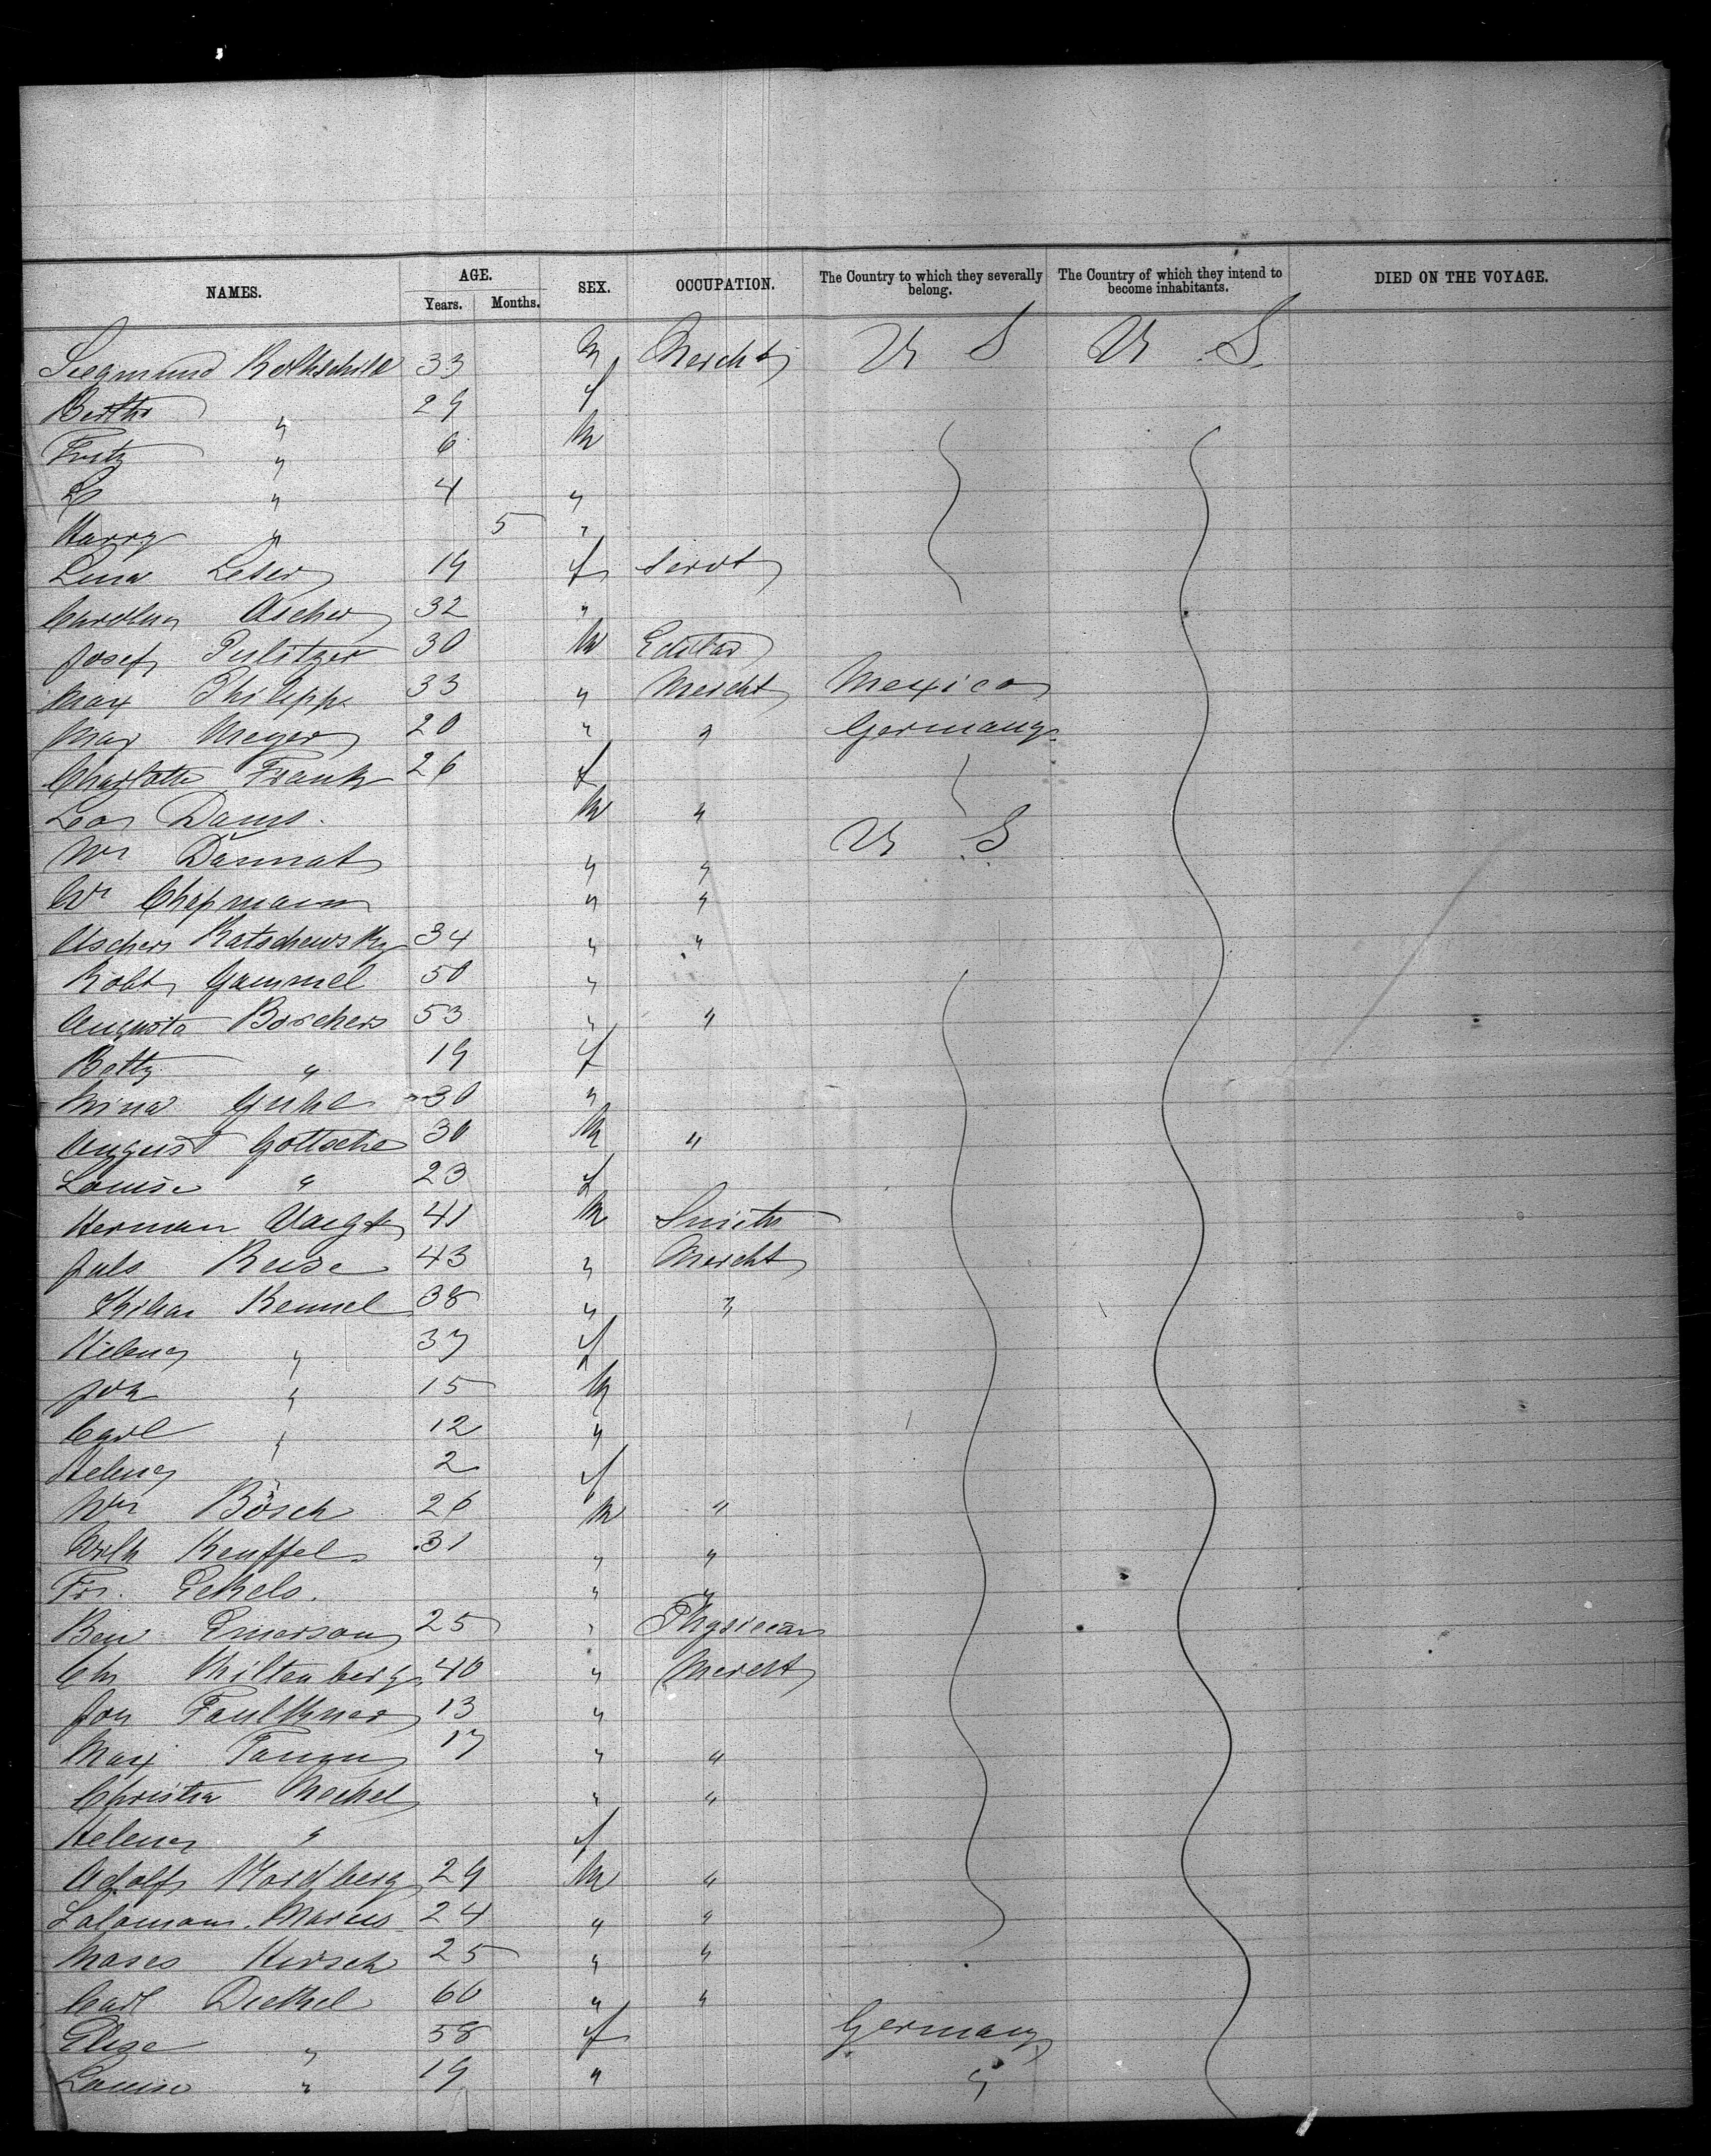 NAMES. AGE. SEX. OCCUPATION. The Country to which they severally belong. The Country of which they intend to become inhabitants. DIED ON THE VOYAGE.
Years. Months.
Siegmund Rothschild 33 m Mercht U S U S.
Bertha " 29 f
Fritz " 6 m
" 4 "
Harry " 5 "
Lina Leser 19 f Servt
Carolina Ascher 32 "
Josef Pulitzer 30 m Editor
Max Philipp. 33 " Mercht Mexico
Max Meyer 20 " " Germany
Charlotte Frank 26 f
Leon Dams. m " U S.
Wm Dannat " "
Wm Chapmann " "
Ascher Ratschewsky 34 " "
Robt Gammel 50 "
Augusta Borchers 53 " "
Betty " 19 f
Mina Guhl 30 "
August Gottsche 30 m "
Louise " 23 f
Herman Vaegt 41 m Smith
Juls Reuse 43 " Mercht
Kilian Kennel 38 " "
Helena " 37 f
Joh " 15 m
Carl " 12 "
Helena 2 f
Wm Bösch 26 m "
Wilh Keuffel 31 " "
Fr. Eckels. " "
Ben Emerson 25 " Physician
Chr Miltenberg 40 " Mercht
Jon Faulkner 13 "
Max 17 " "
Christian Meckel " "
Helena " f
Adolf Nordberg 29 m "
Salamon Marcus 24 " "
Moses Hirsch 25 " "
Carl Diethel 60 " "
Elise " 58 f Germany
Louise " 19 " "